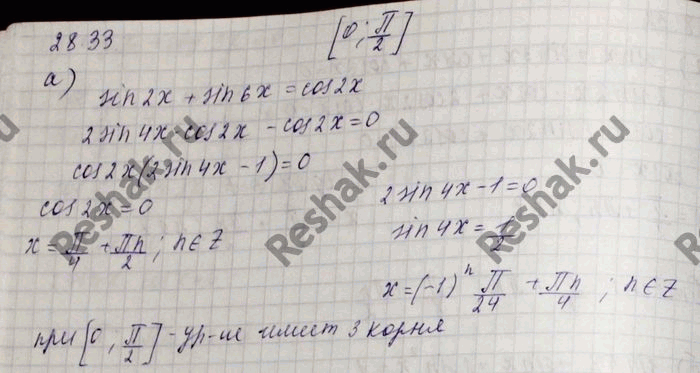 28.33 [0; π/2]
а)
sin2x + sin6x = cos2x
2sin4x·cos2x - cos2x = 0
cos2x(2sin4x - 1) = 0
cos2x = 0
x = π/4 + πn/2; n∈Z
2sin4x - 1 = 0
sin4x = 1/2
x = (-1)ⁿ π/24 + πn/4; n∈Z
при [0, π/2] - ур-ие имеет 3 корня
Reshak.ru
Reshak.ru
Reshak.ru